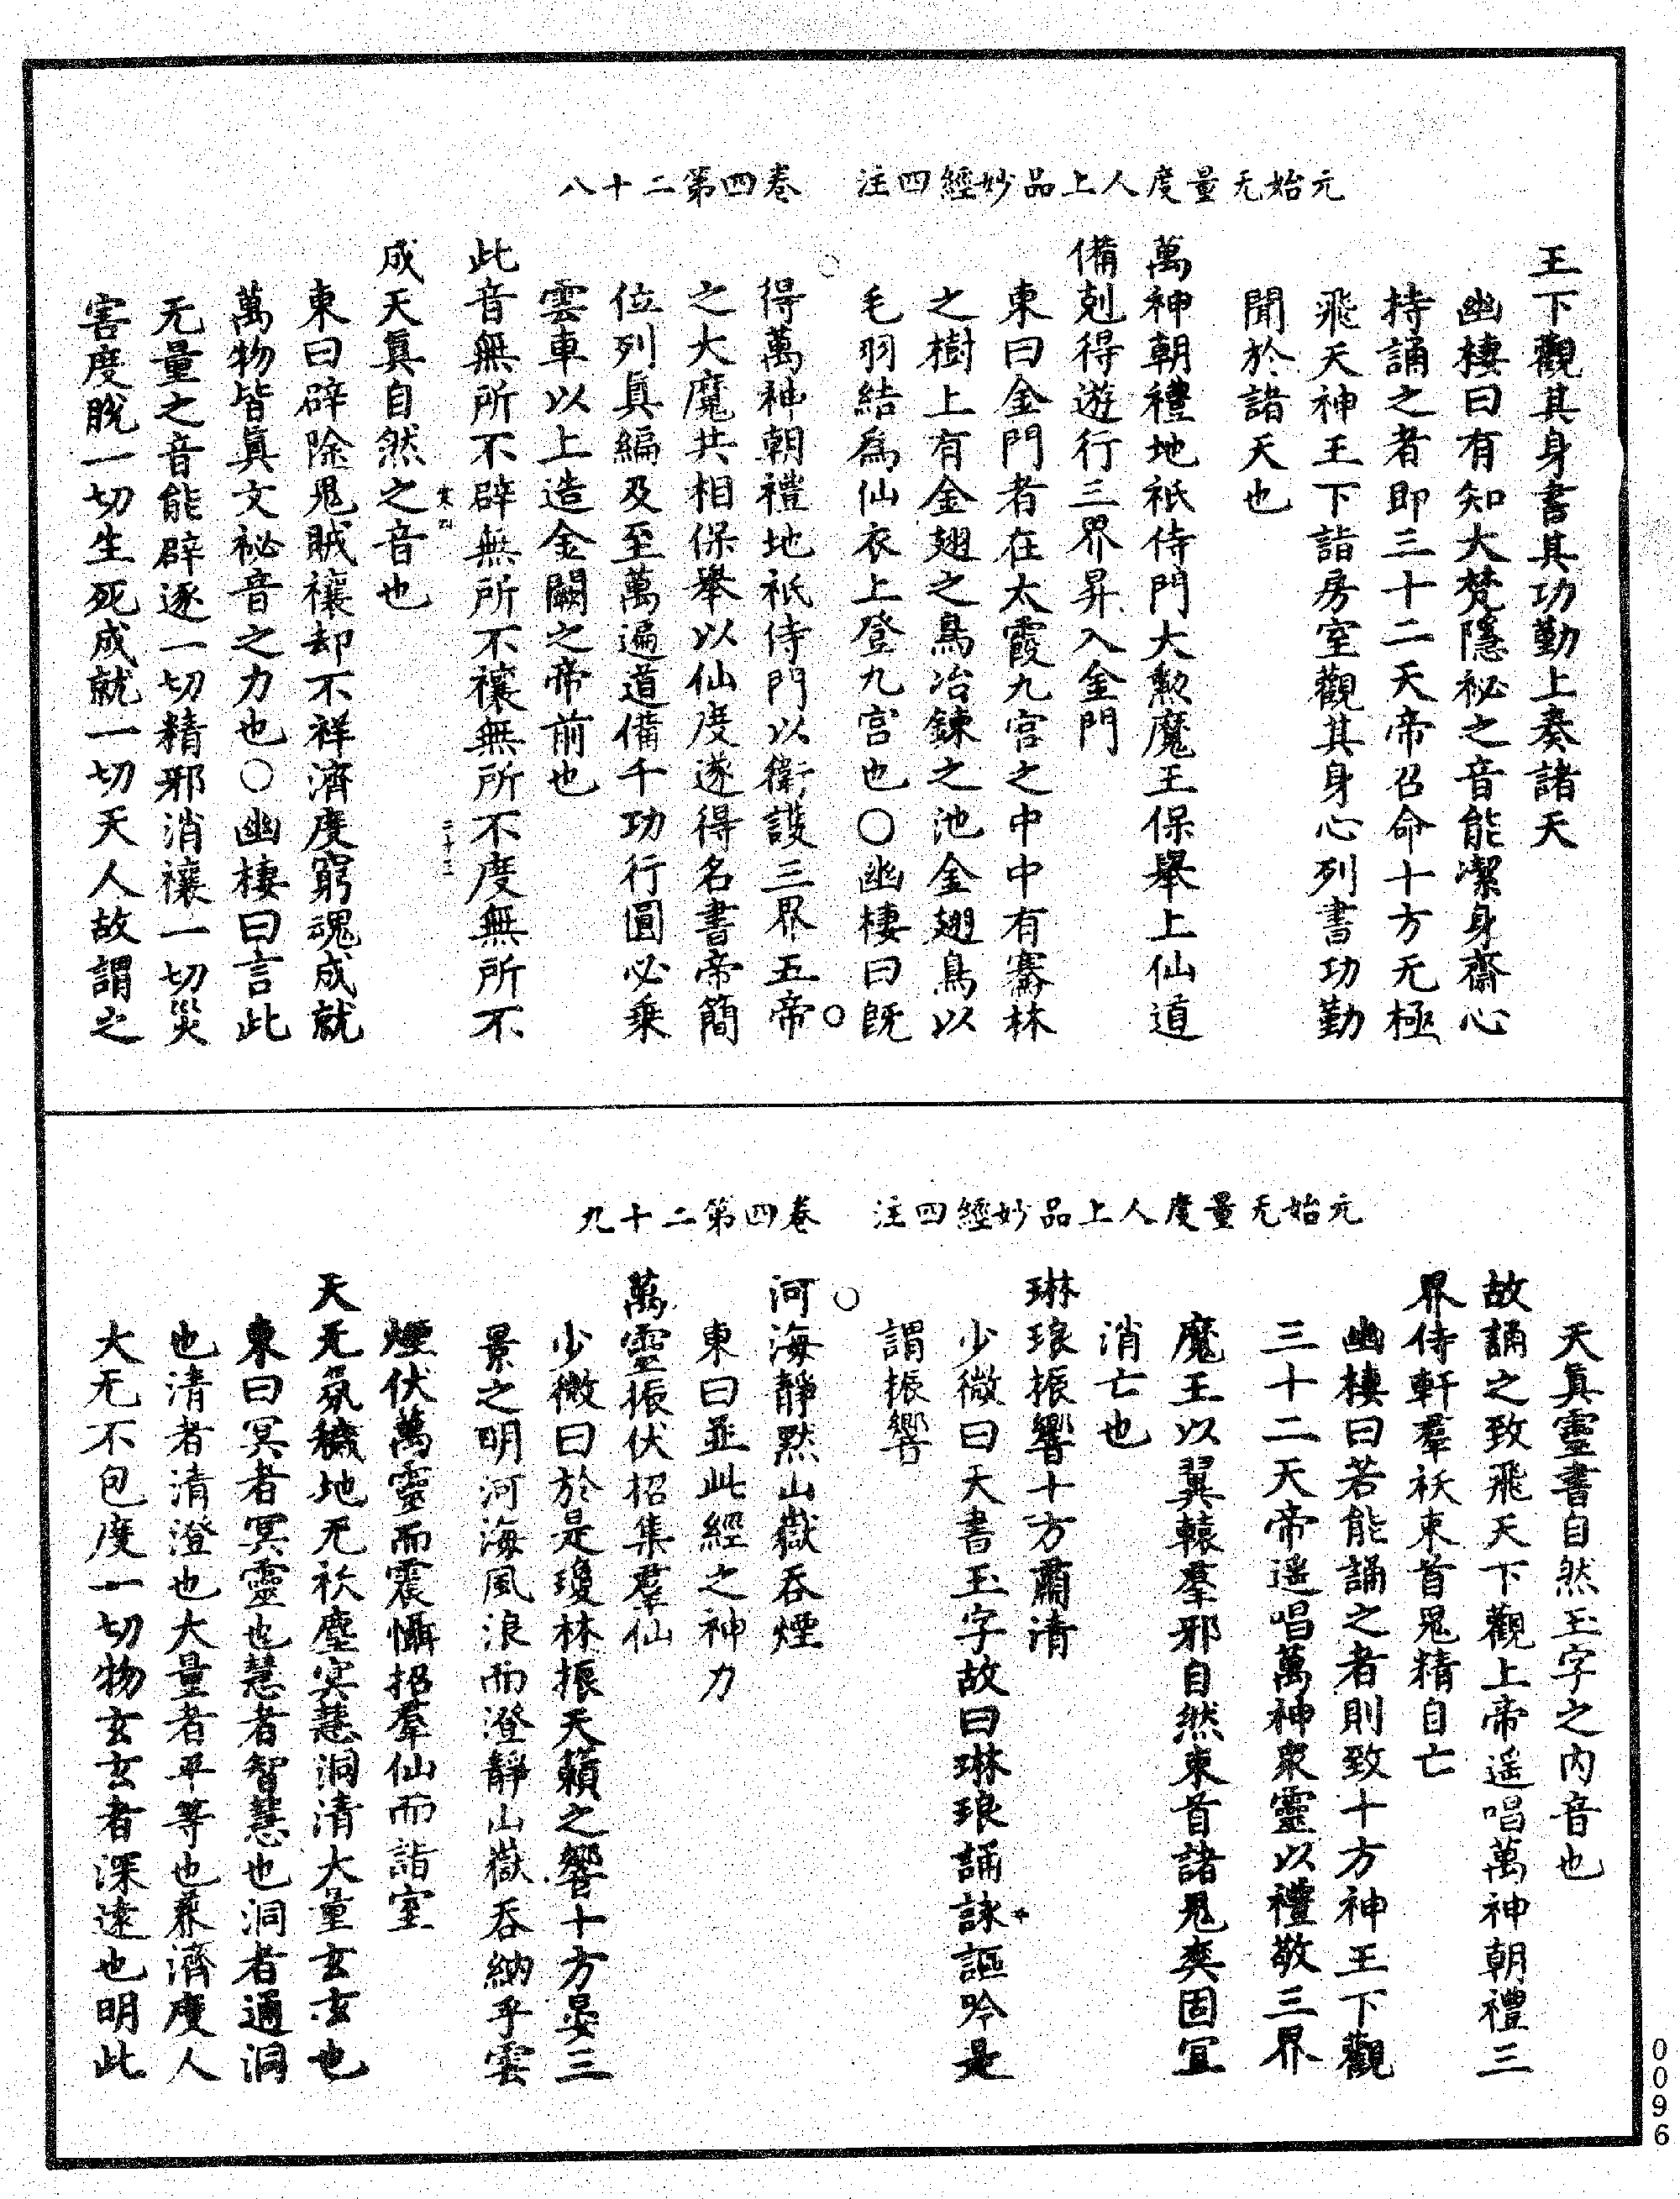 元始无量度人上品妙經四注　卷四第二十八
王下觀其身書其功勤上奏諸天
幽棲曰有知大梵隱祕之音能潔身齋心
持誦之者即三十二天帝召命十方无極
飛天神王下詣房室觀其身心列書功勤
聞於諸天也
萬神朝禮地祇侍門大勲魔王保舉上仙道
備剋得遊行三界昇入金門
東曰金門者在太霞九宮之中中有騫林
之樹上有金翅之鳥冶鍊之池金翅鳥以
毛羽結爲仙衣上登九宮也〇幽棲曰旣
得萬神朝禮地祇侍門以衛護三界五帝
之大魔共相保舉以仙度遂得名書帝簡
位列眞編及至萬遍道備千功行圓必乗
雲車以上造金闕之帝前也
此音無所不辟無所不禳無所不度無所不
寒四　二十三
成天眞自然之音也
東曰辟除鬼賊禳却不祥濟度窮魂成就
萬物皆眞文祕音之力也〇幽棲曰言此
无量之音能辟逐一切精邪消禳一切災
害度脫一切生死成就一切天人故謂之
元始无量度人上品妙經四注　卷四第二十九
天眞靈書自然玉字之內音也
故誦之致飛天下觀上帝遥唱萬神朝禮三
界侍軒羣祅束首鬼精自亡
幽棲曰若能誦之者則致十方神王下觀
三十二天帝遥唱萬神衆靈以禮敬三界
魔王以翼轅羣邪自然束首諸鬼爽固宜
消亡也
琳琅振響十方肅清
少微曰天書玉字故曰琳琅誦詠謳吟是
謂振響
河海靜默山嶽吞煙
東曰並此經之神力
萬靈振伏招集羣仙
少微曰於是瓊林振天籟之響十方晏三
景之明河海風浪而澄靜山嶽吞納乎雲
煙伏萬靈而震懾招羣仙而詣室
天无氛穢地无祅塵冥慧洞清大量玄玄也
東曰冥者冥靈也慧者智慧也洞者通洞
也清者清澄也大量者平等也兼濟度人
大无不包度一切物玄玄者深遠也明此
0096